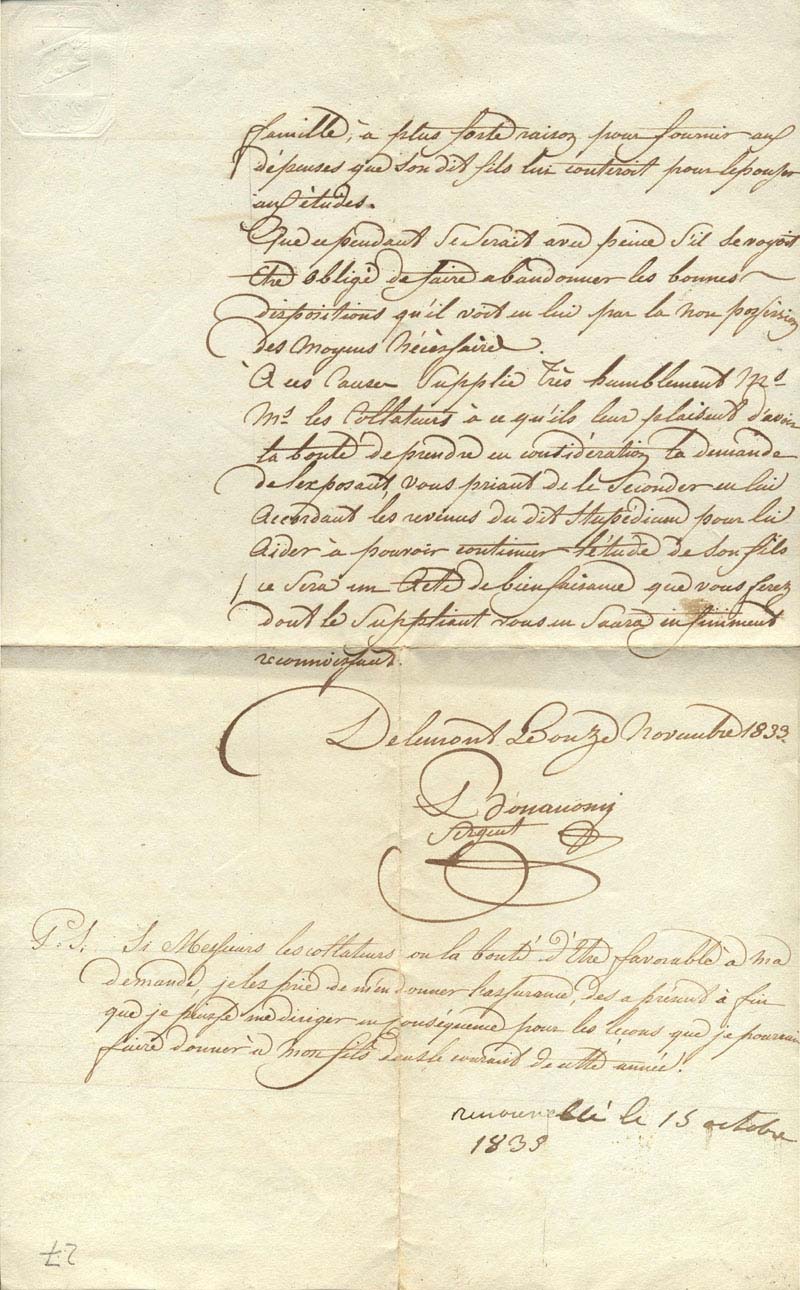 famille, à plus forte raison pour fournir aux
dépenses que son dit fils lui conteroit pour le pousser
aux études.
Que cependant se serait avec peine s'il se voyoit
être obligé de faire abandonner les bonnes
dispositions qu'il voit en lui par la non possession
des moyens nécèssaire.
A ces cause supplie très humblement Mrs
Mrs les Collateurs à ce qu'ils leur plaisent d'avoir
la bonté de prendre en considération la demande
de l'exposant, vous priant de le seconder en lui
accordant les revenus du dit Stupédium pour lui
aider à pouvoir continuer l'étude de son fils
ce sera un acte de bienfaisance que vous ferez
dont le suppliant vous en saura infiniment
reconnoissant.
Delémont le onze Novembre 1833.
Sergent
P.S. Si Messieurs les collateurs ou la bonté d'être favorable à ma
demande, je les prie de m'en donner l'assurance, des a présent à fin
que je puisse me diriger en conséquence pour les leçons que je pourrai
faire donner à mon fils dans le courant de cette année.
renouvellé le 15 octobre
1835